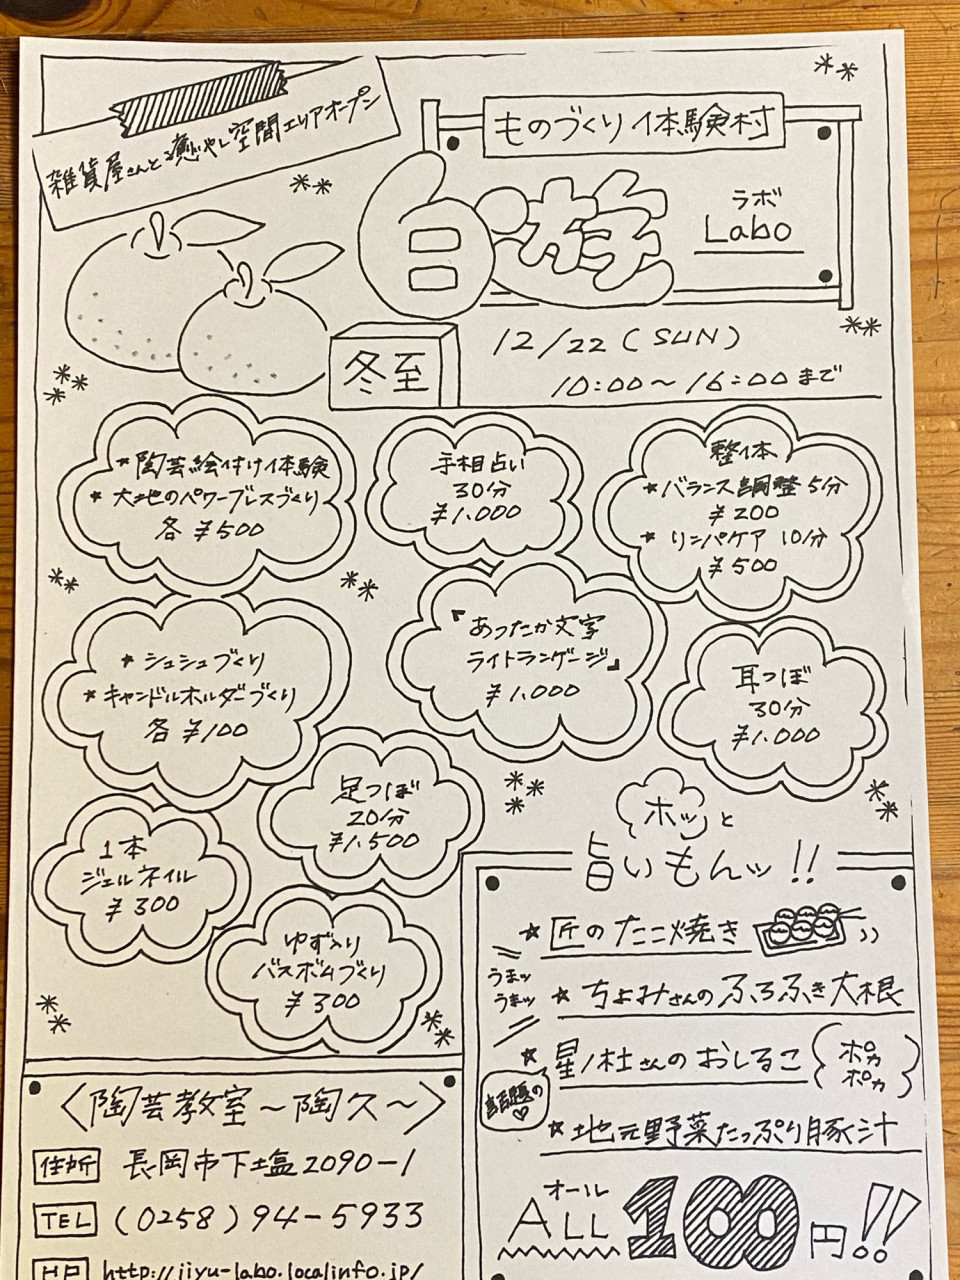 雑貨屋さんと癒やし空間エリアオープン
ものづくり体験村
自遊
ラボ
Labo
冬至
12/22 (SUN)
10:00~16:00まで
★陶芸絵付け体験
★大地のパワーブレスづくり
各 ¥500
手相占い
30分
¥1.000
整体
★バランス調整 5分
¥200
★リンパケア 10分
¥500
★シュシュづくり
★キャンドルホルダーづくり
各 ¥100
『あったか文字
ライトランゲージ』
¥1.000
耳つぼ
30分
¥1.000
足つぼ
20分
¥1.500
1本
ジェルネイル
¥300
ゆず入り
バスボムづくり
¥300
ホッと
旨いもんッ!!
★匠のたこ焼き
うまッ
うまッ
★ちよみさんのふろふき大根
★星ノ杜さんのおしるこ
ポカ
ポカ
話題の
★地元野菜たっぷり豚汁
オール
ALL 100円!!
〈陶芸教室~陶久~〉
住所 長岡市下塩2090-1
TEL (0258)94-5933
HP http://jiyu-labo.localinfo.jp/